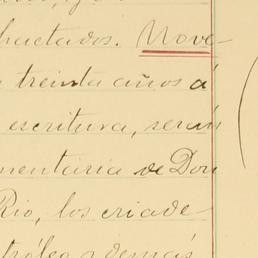 hactados. Nove-
treinta años á
escritura, serán
mentaria de Don
Rio, los criade-
tróleo y demás